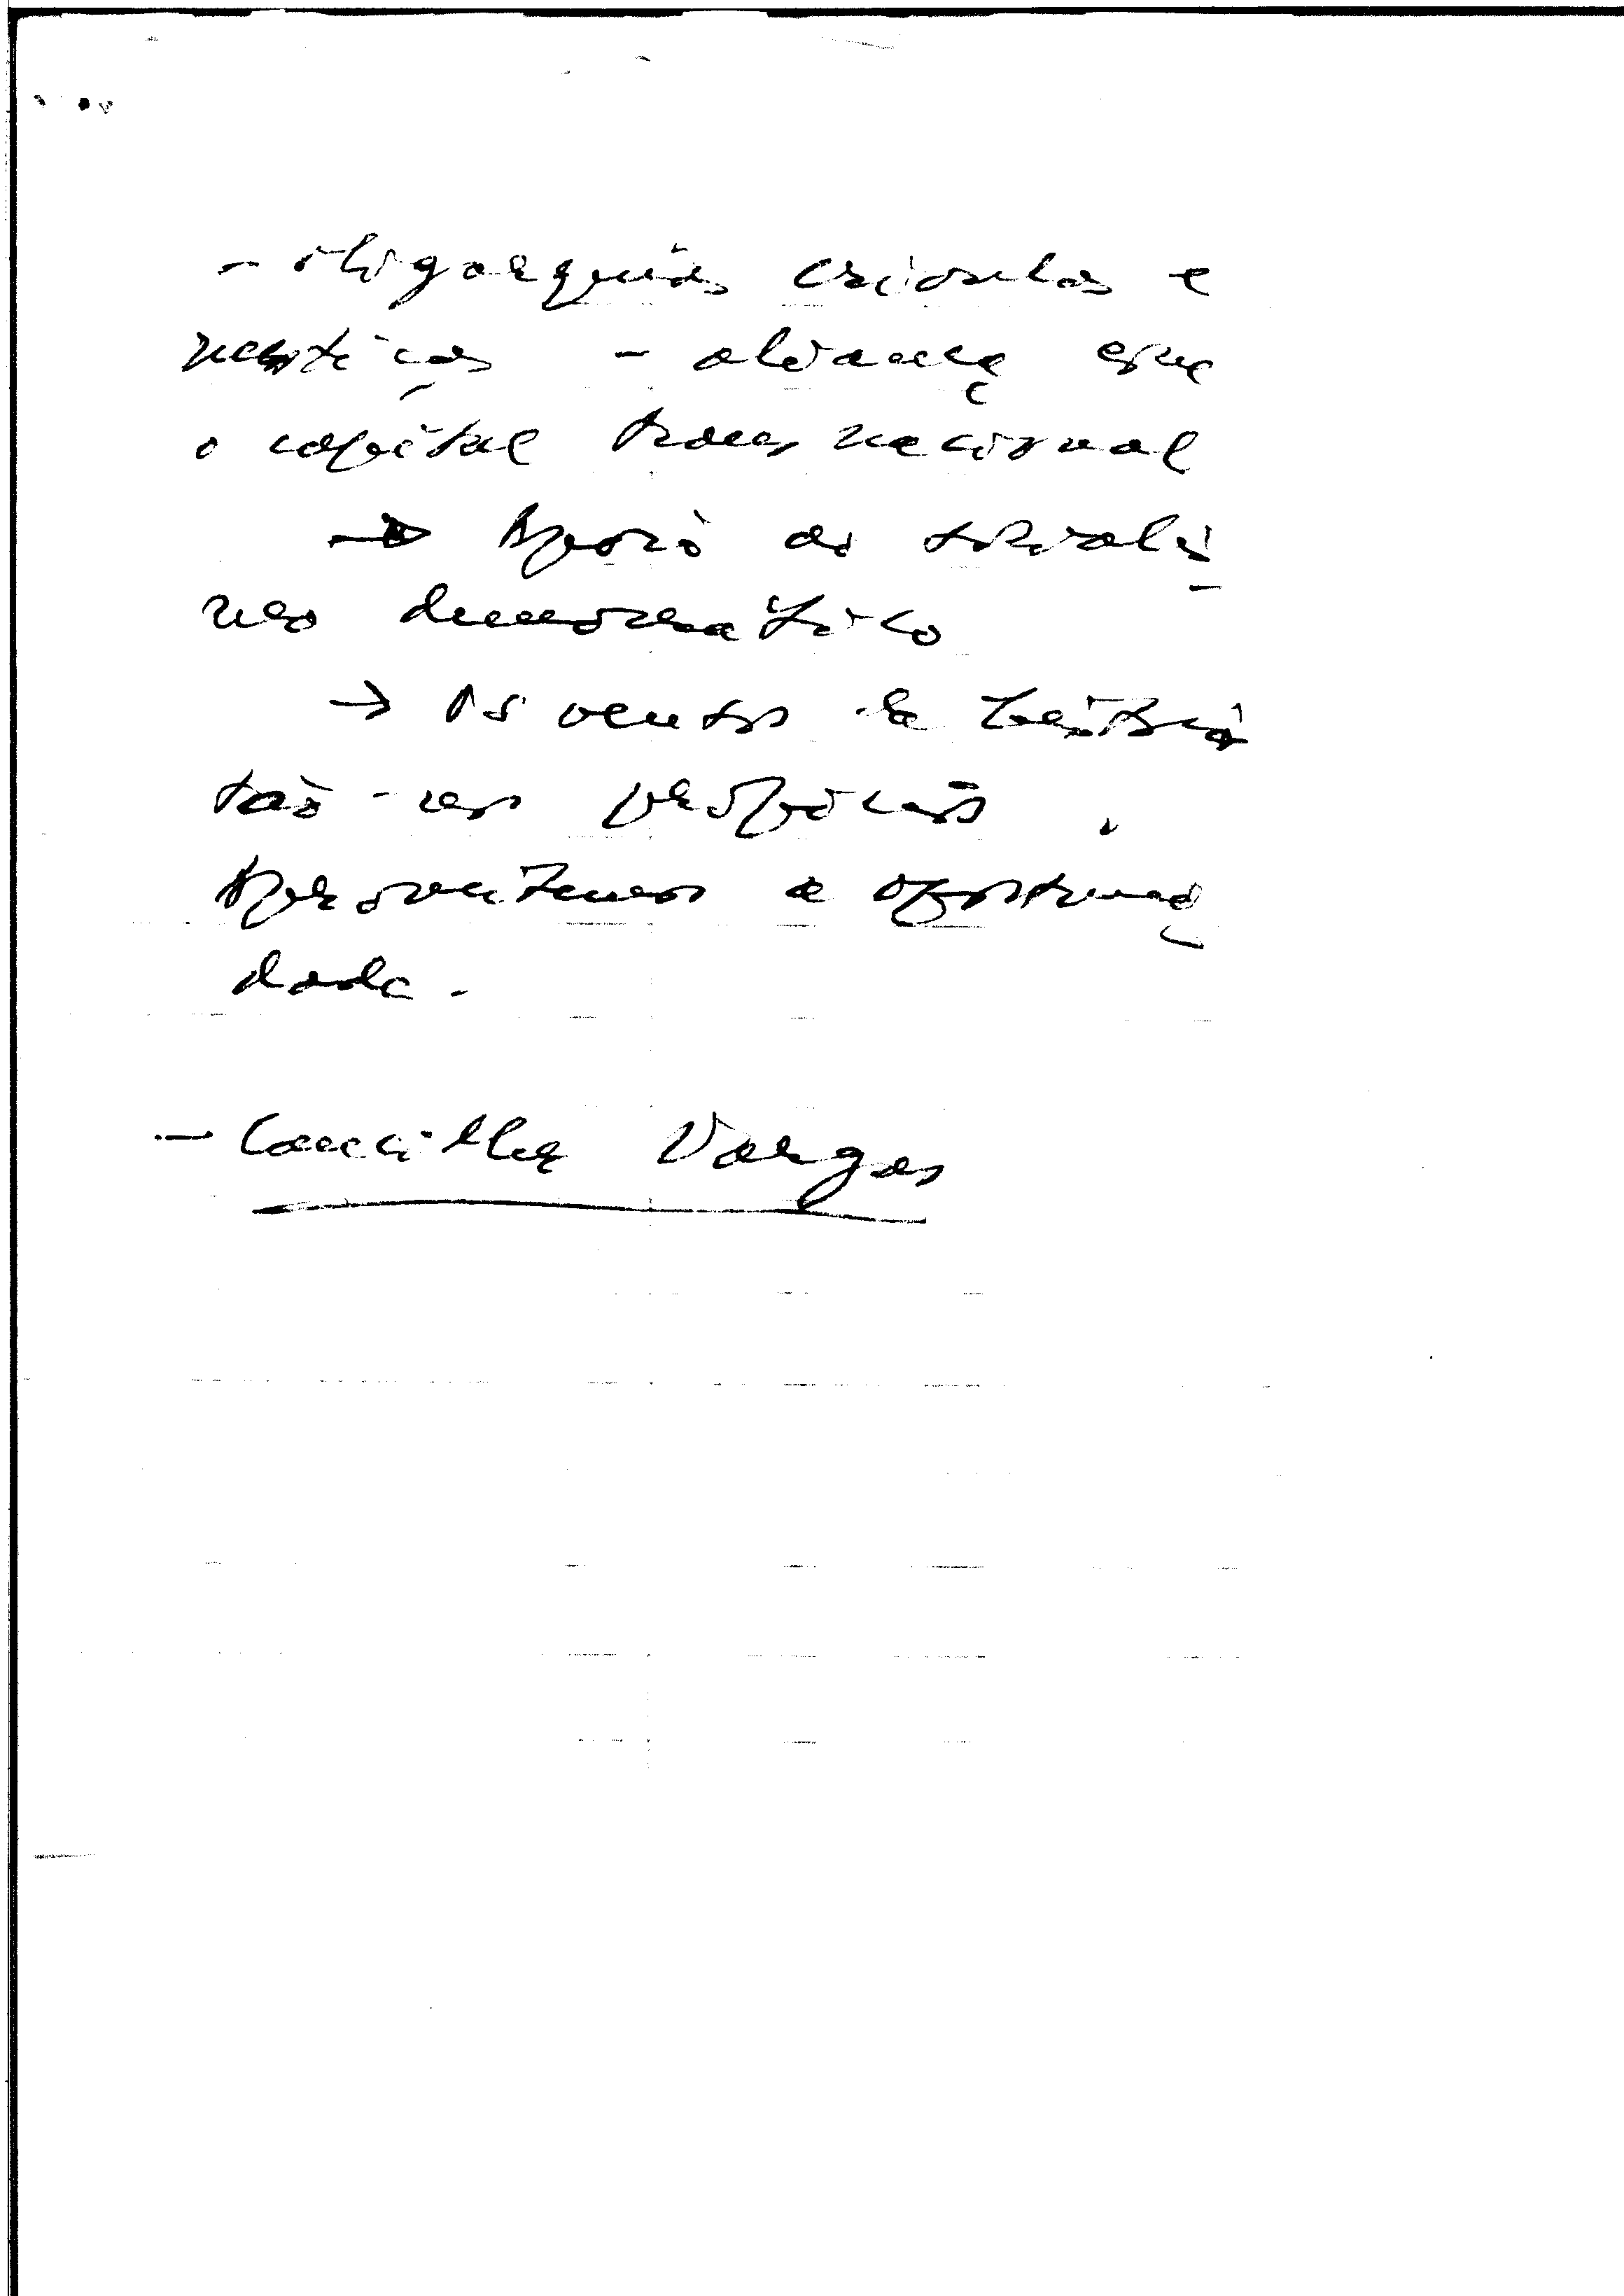 - oligarquias crioulas e
mestiças - aliança com
o capital transnacional
→ Apoio ao sociali_
mo democrático
→ Os ventos da história
são-nos propícios.
Aproveitemos a oportuni_
dade.
- Camilha Vargas